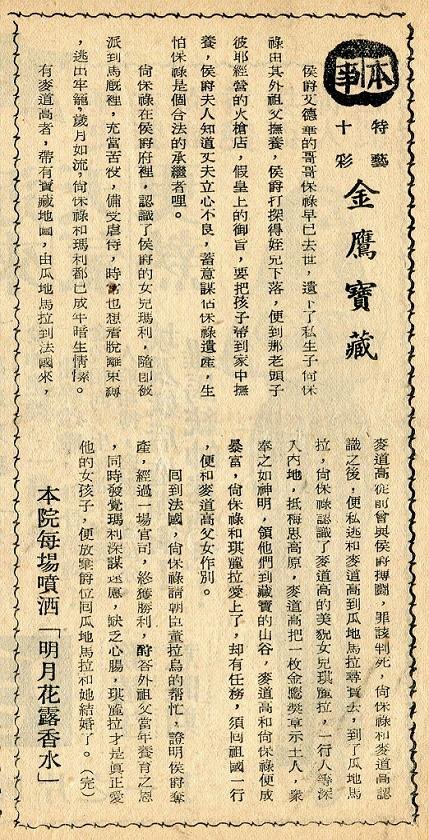 本事
特藝
十彩
金鷹寶藏
侯爵艾德華的哥哥保祿早已去世，遺下了私生子尙保
祿由其外祖父撫養，侯爵打探得姪兒下落，便到那老頭子
彼耶經營的火槍店，假皇上的御旨，要把孩子帶到家中撫
養，侯爵夫人知道丈夫立心不良，蓄意謀佔保祿遺產，生
怕保祿是個合法的承繼者哩。
尙保祿在侯爵府裡，認識了侯爵的女兒瑪利，隨卽被
派到馬廐裡，充當苦役，備受虐待，時常也想着脫離束縛
，逃出牢籠，歲月如流，尙保祿和瑪利都已成年暗生情愫。
有麥道高者，帶有寶藏地圖，由瓜地馬拉到法國來，
麥道高從前曾與侯爵搏鬭，罪該判死，尙保祿和麥道高認
識之後，便私逃和麥道高到瓜地馬拉尋寶去，到了瓜地馬
拉，尙保祿認識了麥道高的美貌女兒琪龍拉，一行人等深
入內地，抵梅恩高原，麥道高把一枚金鷹獎章示土人，衆
奉之如神明，領他們到藏寶的山谷，麥道高和尙保祿便成
暴富，尙保祿和琪龍拉愛上了，却有任務，須囘祖國一行
，便和麥道高父女作別。
囘到法國，尙保祿請朝臣童拉烏的幫忙，證明侯爵奪
產，經過一場官司，終獲勝利，酧答外祖父當年養育之恩
，同時發覺瑪利深謀遠慮，缺乏心腸，琪龍拉才是眞正愛
他的女孩子，便放棄爵位囘瓜地馬拉和她結婚了。（完）
本院每場噴洒「明月花露香水」